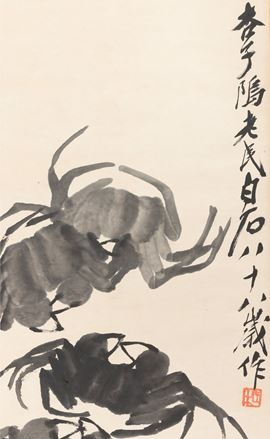 杏子隝老民白石八十八歲作